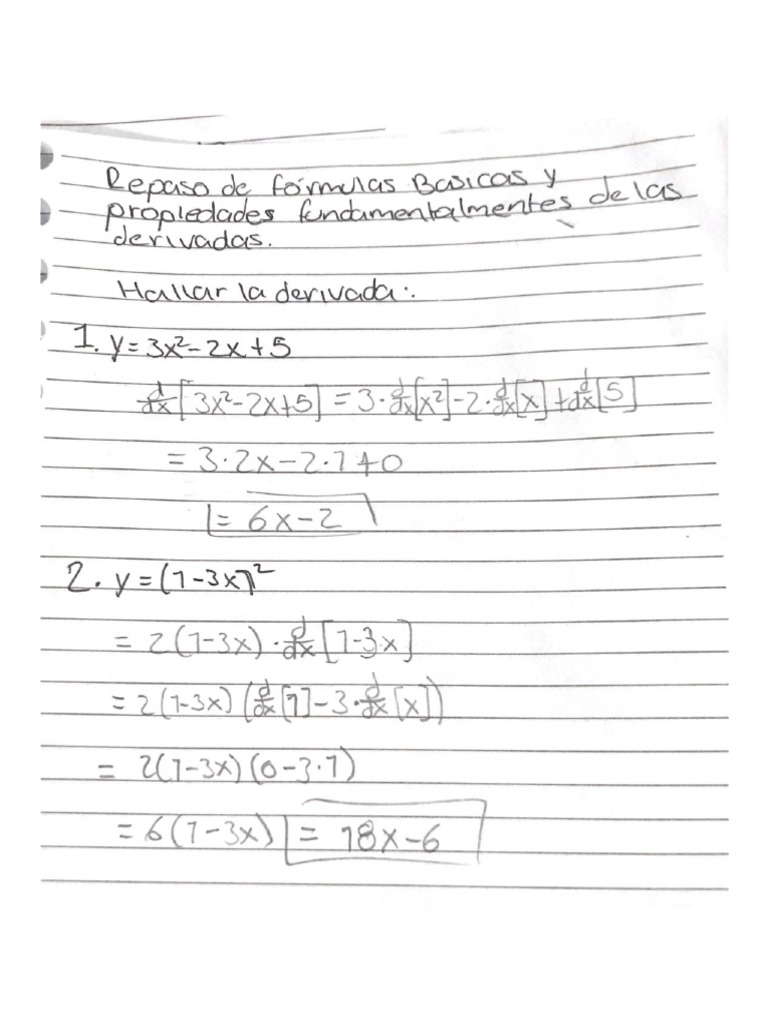 Repaso de fórmulas Basicas y
propiedades fundamentalmentes de las
derivadas.
Hallar la derivada:.
1. y=3x²-2x+5
d/dx[3x²-2x+5] = 3·d/dx[x²]-2·d/dx[x]+d/dx[5]
= 3·2x-2·1+0
= 6x-2
2. y=(1-3x)²
= 2(1-3x)·d/dx[1-3x]
= 2(1-3x)(d/dx[1]-3·d/dx[x])
= 2(1-3x)(0-3·1)
= 6(1-3x) = 18x-6